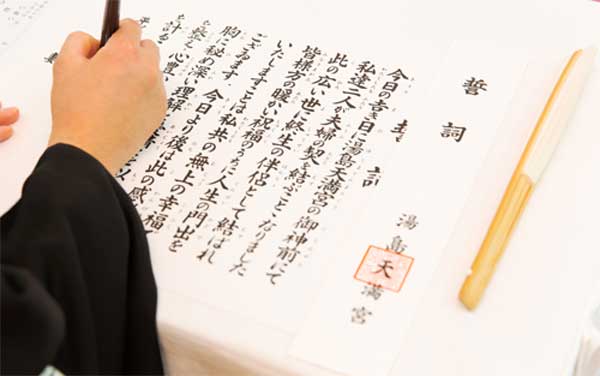 誓詞
湯島天満宮
今日の吉き日に湯島天満宮の御神前にて
私達二人が夫婦の契を結ぶことになりました
此の広い世に終生の伴侶として結ばれ
皆様方の暖かい祝福のうちに人生の門出を
いたしますことは私共の無上の幸福
ございます 今日より後は此の感
胸に秘め深い理解
心豊
を計